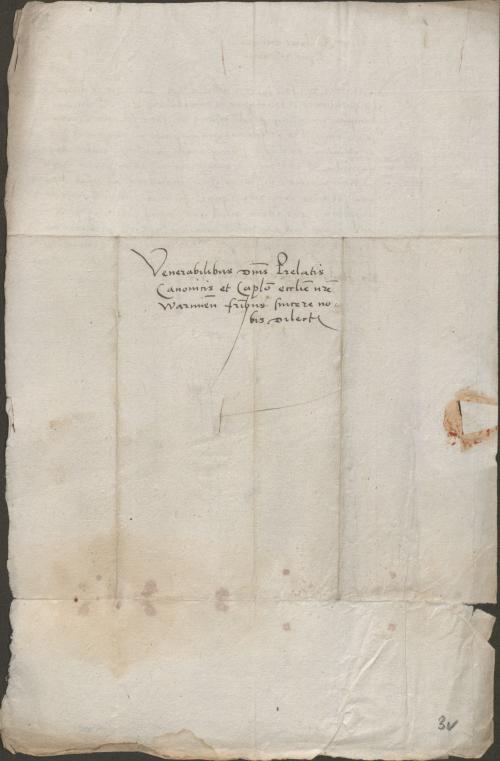 Venerabilibus Dnis Prelatis
Canonicis et Caplo ecclie nre
Warmien fribus sincere no-
bis dilect
3v